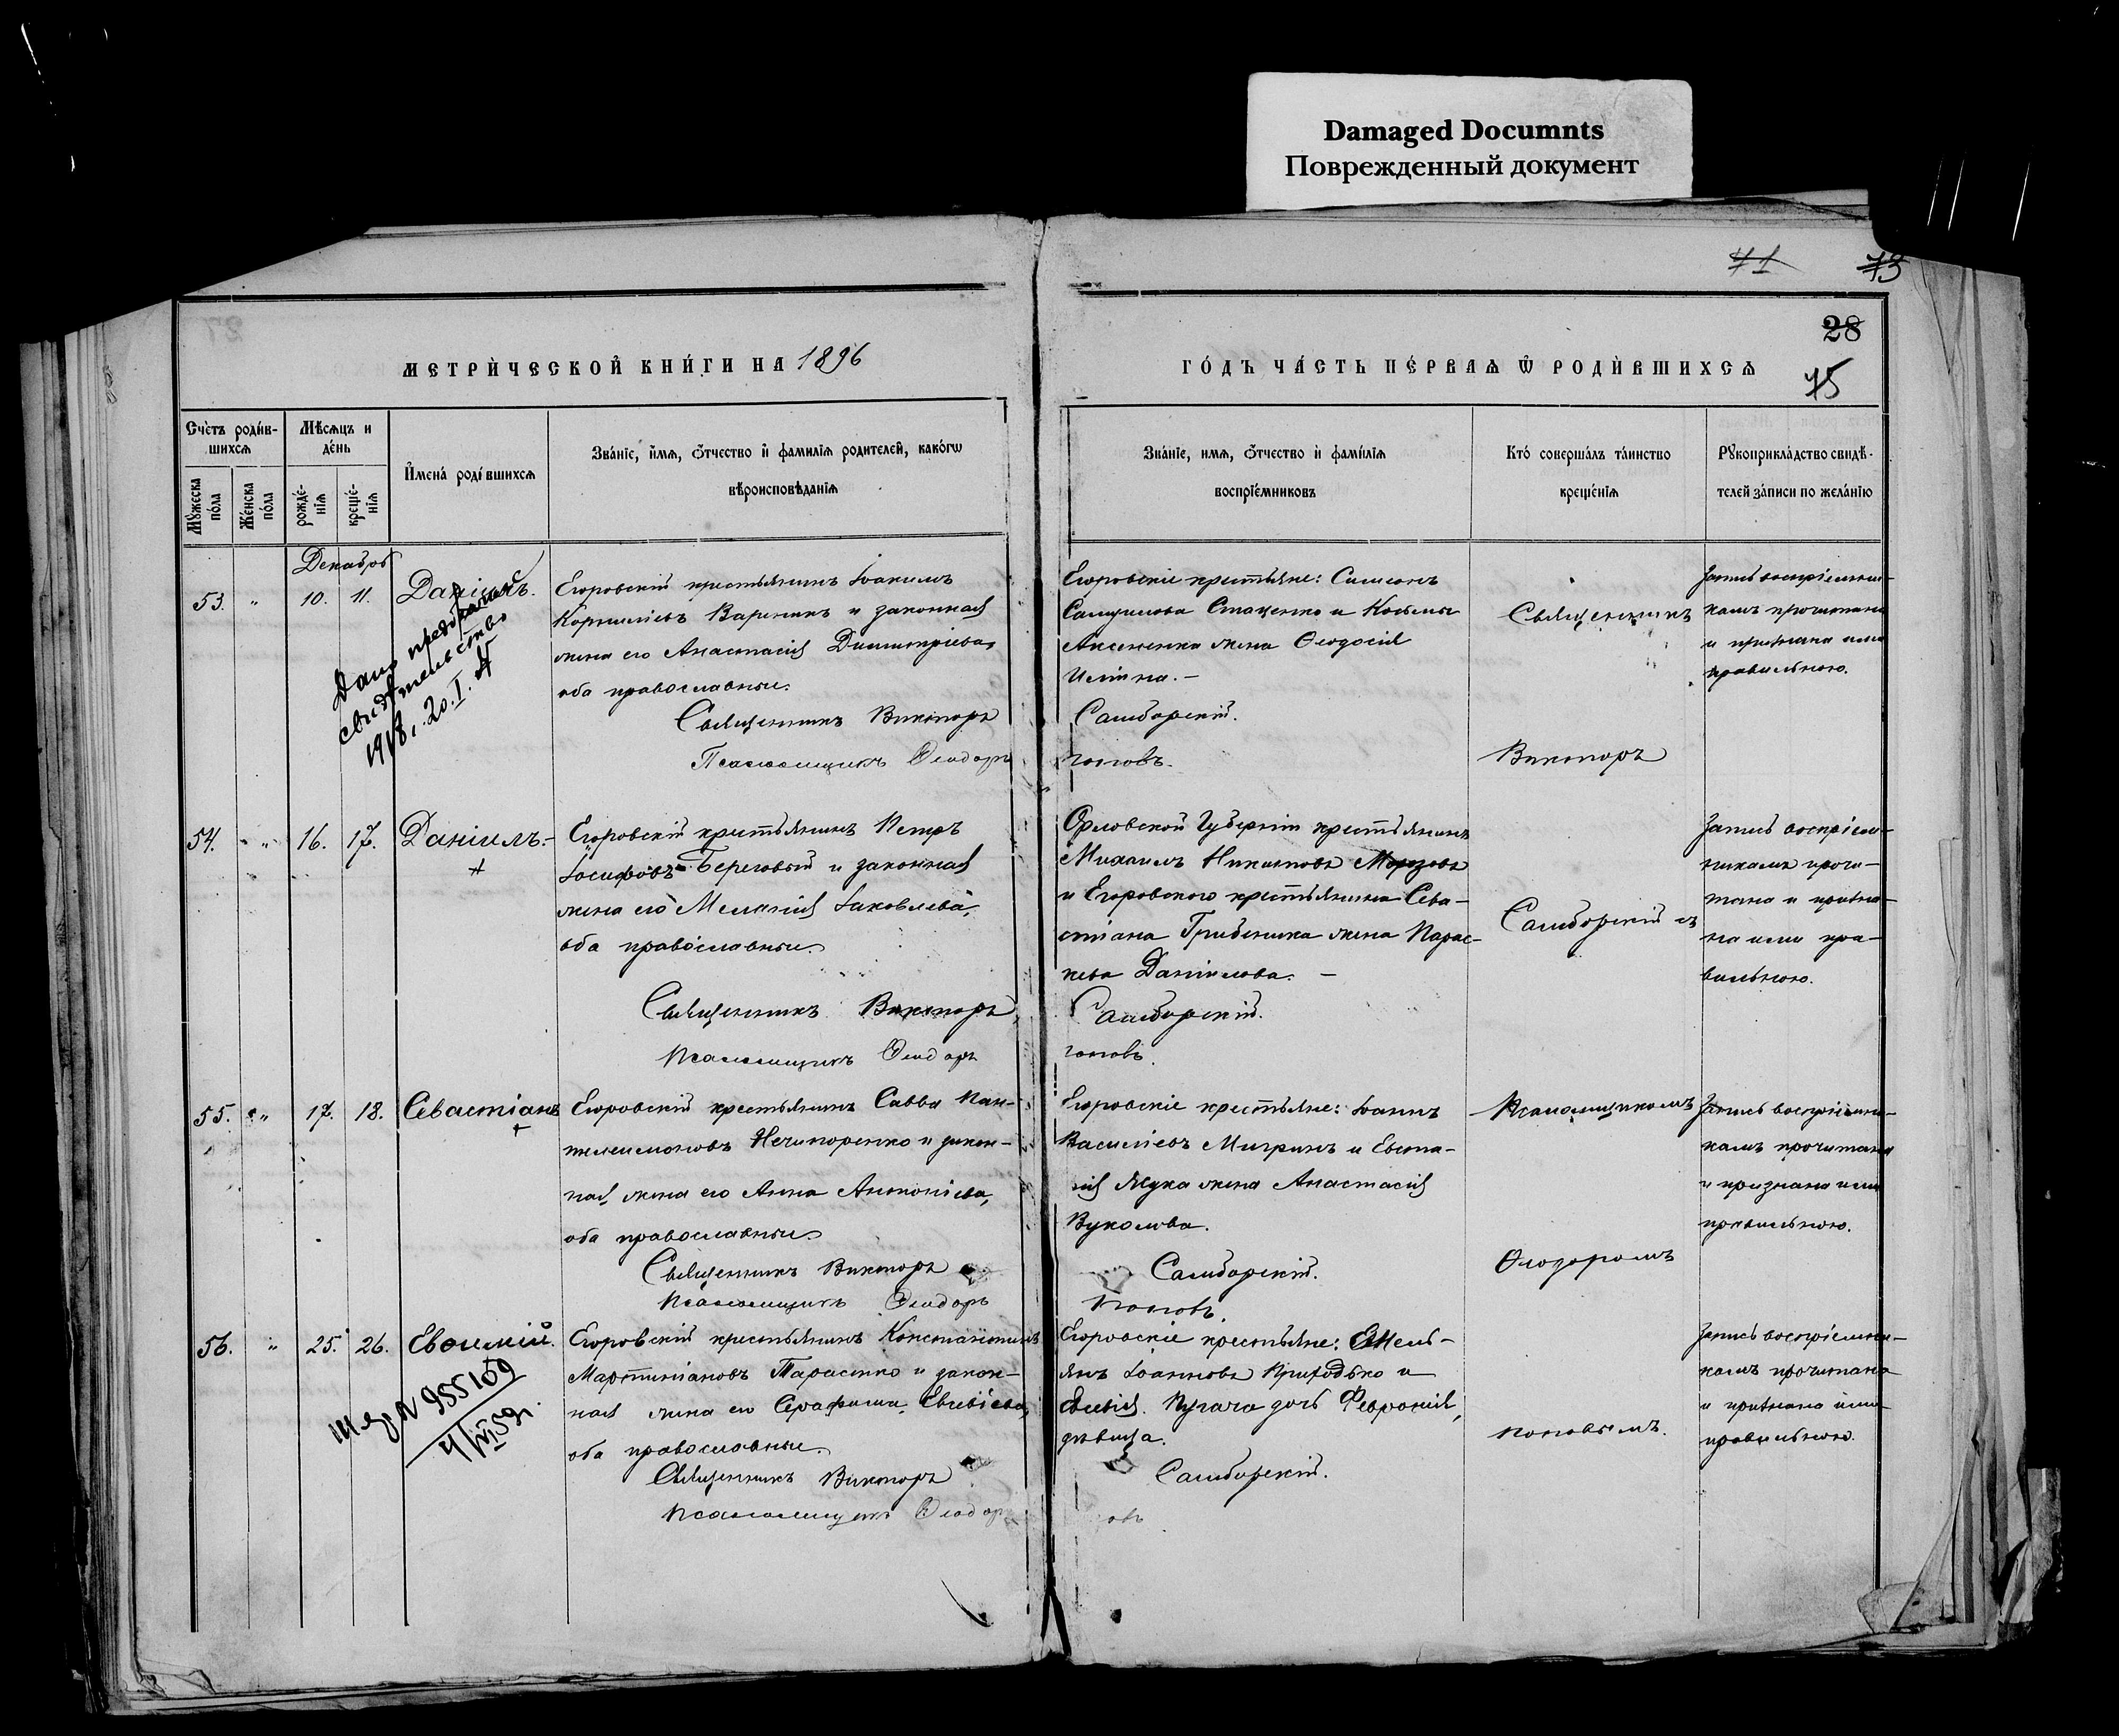 Damaged Documnts
Поврежденный документ
71
73
28
75
МЕТРИ́ЧЕСКОЙ КНИ́ГИ НА 1896
ГО́ДЪ ЧА́СТЬ ПЕ́РВАѦ Ѡ РОДИ́ВШИХСѦ
Сче́тъ роди́в-
шихсѧ
Мѣ́сѧцъ и
де́нь
Мꙋ́жеска
по́ла
Же́нска
по́ла
рожде́-
нїѧ
креще́-
нїѧ
И҆мена̀ роди́вшихсѧ
Зва́нїе, и҆́мѧ, ѻ҆́тчество и҆ фами́лїѧ роди́телей, како́гѡ
вѣроисповѣ́данїѧ
Зва́нїе, имѧ, ѻ҆́тчество и҆ фами́лїѧ
воспрїе́мниковъ
Кто́ соверша́лъ та́инство
креще́нїѧ
Рꙋкоприкла́дство свидѣ́-
телей за́писи по жела́нїю
Декабрь
53. " 10. 11. Даніилъ.
Егоровскій крестьянинъ Іоакимъ
Корниліевъ Вареникъ и законная
жена его Анастасія Димитріева,
оба православные.
Священникъ Викторъ
Псаломщикъ Ѳеодоръ
Дано
свидѣтельство
1918. 20. I.
Егоровскіе крестьяне: Симеонъ
Стаценко и Косьмы
Аксененка жена Ѳеодосія
Самборскій.
Поповъ.
Священникъ
Викторъ
Запись воспріемни-
камъ прочитана
и признана ими
правильною.
54. " 16. 17. Даніилъ.
Егоровскій крестьянинъ Петръ
Іосифовъ Береговый и законная
жена его Меланія Іаковлева,
оба православные.
Священникъ Викторъ
Псаломщикъ Ѳеодоръ
Орловской Губерніи крестьянинъ
Михаилъ Никитовъ Морозовъ
и Егоровского крестьянина Сева-
стіана Грибеника жена Парас-
кева Даніилова. —
Самборскій.
Поповъ.
Самборскій съ
Запись воспріем-
никамъ прочи-
тана и призна-
на ими пра-
вильною.
55. " 17. 18. Севастіанъ
Егоровскій крестьянинъ Савва Пан-
телеимоновъ Нечипоренко и закон-
ная жена его Анна Антоніева,
оба православные.
Священникъ Викторъ
Псаломщикъ Ѳеодоръ
Егоровскіе крестьяне: Іоаннъ
Василіевъ Мигринъ и Евста-
жена Анастасія
Вуколова.
Самборскій.
Поповъ.
Псаломщикомъ
Ѳеодоромъ
Запись воспріемни-
камъ прочитана
и признана ими
правильною.
56. " 25. 26. Евѳимій.
Егоровскій крестьянинъ Константинъ
Мартиніановъ Тарасенко и закон-
ная жена его Серафима Евсевіева,
оба православные.
Священникъ Викторъ
Псаломщикъ Ѳеодоръ
955109
4/VI 59г.
Егоровскіе крестьяне: Емель-
янъ Іоанновъ Приходько и
Евсевія Пугача дочь Февронія,
дѣвица.
Самборскій.
Поповымъ.
Запись воспріемни-
камъ прочитана
и признана ими
правильною.